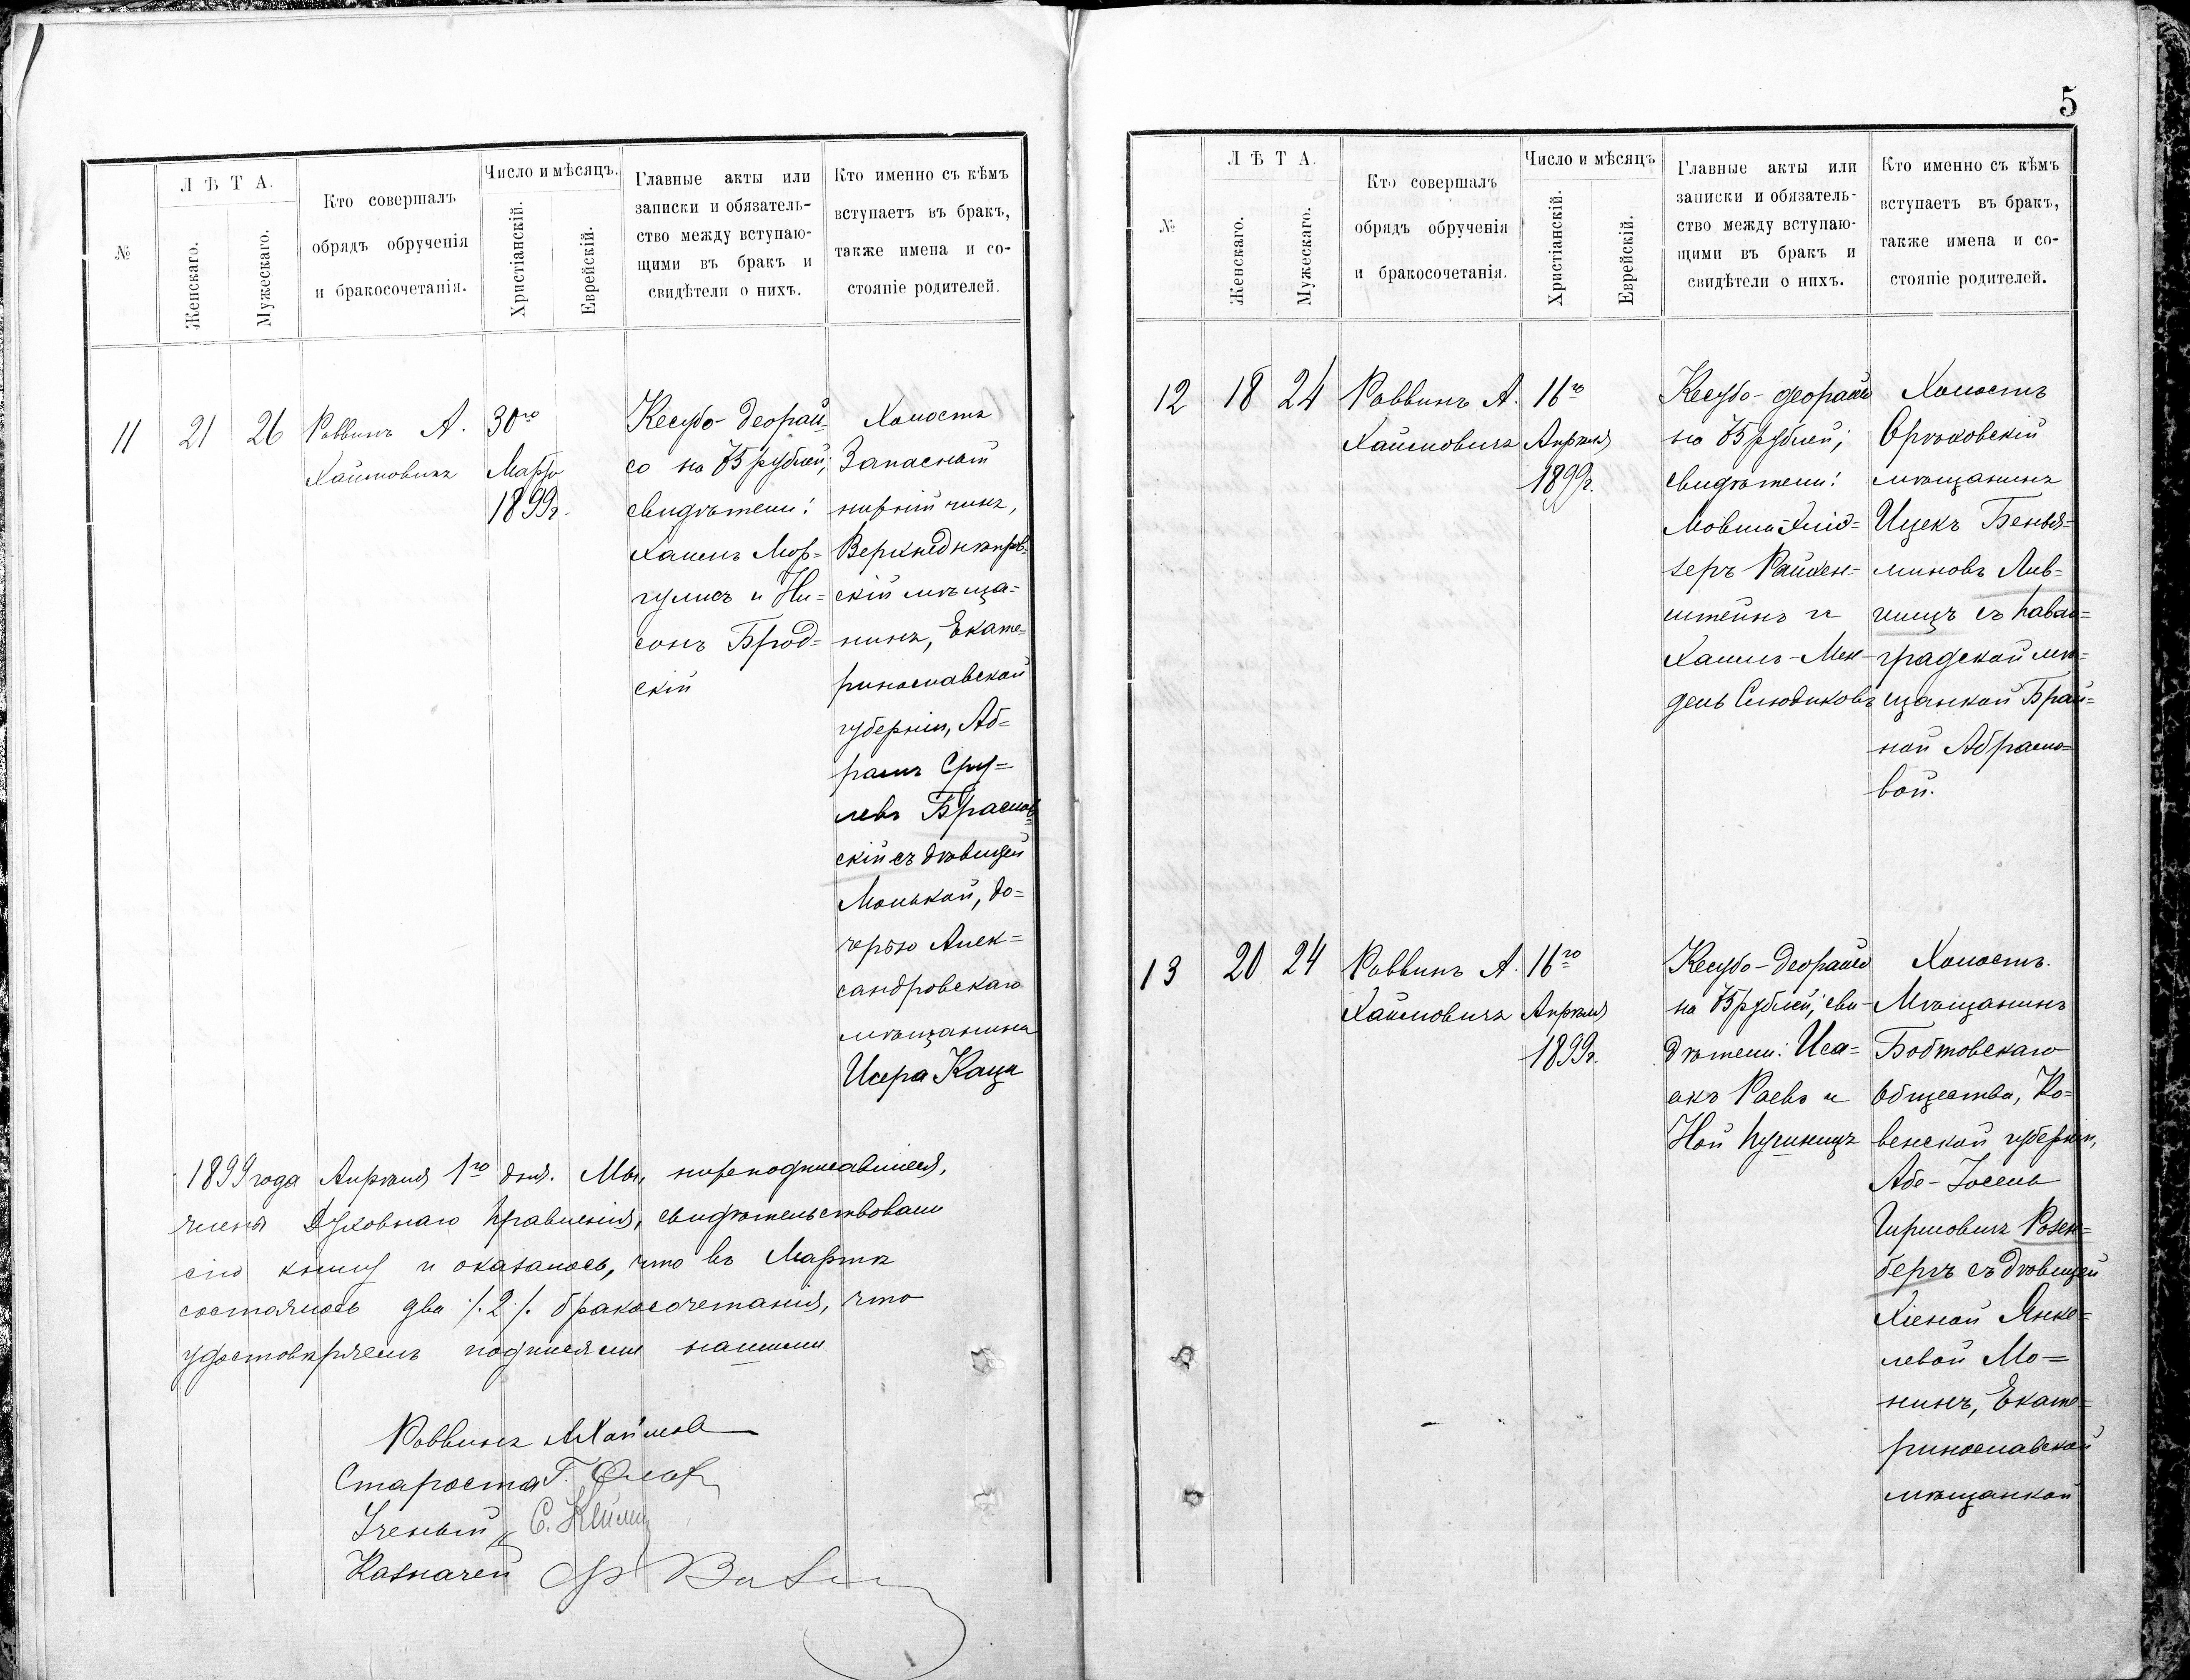 №
Л Ѣ Т А.
Женскаго.
Мужескаго.
Кто совершалъ
обрядъ обрученія
и бракосочетанія.
Число и мѣсяцъ.
Христіанскій.
Еврейскій.
Главные акты или
записки и обязатель-
ство между вступаю-
щими въ бракъ и
свидѣтели о нихъ.
Кто именно съ кѣмъ
вступаетъ въ бракъ,
также имена и со-
стояніе родителей.
11
21
26
Раввинъ А.
Хаимовичъ
30го
Марта
1899г.
Кесубо-деорай-
со на 75 рублей;
свидѣтели:
Хаимъ Мар-
гулисъ и Ни-
сонъ Брод-
скій
Холостъ
Запасный
нижній чинъ,
Верхнеднѣпров-
скій мѣща-
нинъ, Екате-
ринославской
губерніи, Аб-
рамъ Сру-
левъ
скій съ дѣвицей
Манькой, до-
черью Алек-
сандровскаго
мѣщанина
Исера Каца
1899 года Апрѣля 1го дня. Мы, нижеподписавшіеся,
члены Духовнаго Правленія, свидѣтельствовали
сію книгу и оказалось, что въ Мартѣ
состоялось два /.2./ бракосочетанія, что
удостовѣряемъ подписями нашими
Раввинъ
Староста Г.
Ученый С.
Казначей
5
№
Л Ѣ Т А.
Женскаго.
Мужескаго.
Кто совершалъ
обрядъ обрученія
и бракосочетанія.
Число и мѣсяцъ
Христіанскій.
Еврейскій.
Главные акты или
записки и обязатель-
ство между вступаю-
щими въ бракъ и
свидѣтели о нихъ.
Кто именно съ кѣмъ
вступаетъ въ бракъ,
также имена и со-
стояніе родителей.
12
18
24
Раввинъ А.
Хаимовичъ
16го
Апрѣля
1899г.
Кесубо-деорайсо
на 75 рублей;
свидѣтели:
Мовша-
зеръ Райхен-
штейнъ и
Хаимъ-Мен-
дель Слюдиковъ
Холостъ
Орѣховскій
мѣщанинъ
Ицекъ Бенья-
миновъ Лив-
шицъ съ Павло-
градской мѣ-
щанкой Брай-
ной Абрамо-
вой.
13
20
24
Раввинъ А.
Хаимовичъ
16го
Апрѣля
1899г.
Кесубо-деорайсо
на 75 рублей; сви-
дѣтели: Иса-
акъ Раевъ и
Ной
Холостъ.
Мѣщанинъ
Ботовскаго
Общества, Ко-
венской губерніи,
Абе-Іосель
Гиршовичъ Розен-
бергъ съ дѣвицей
Хіеной Янке-
левой Мо-
нинъ, Екате-
ринославской
мѣщанкой